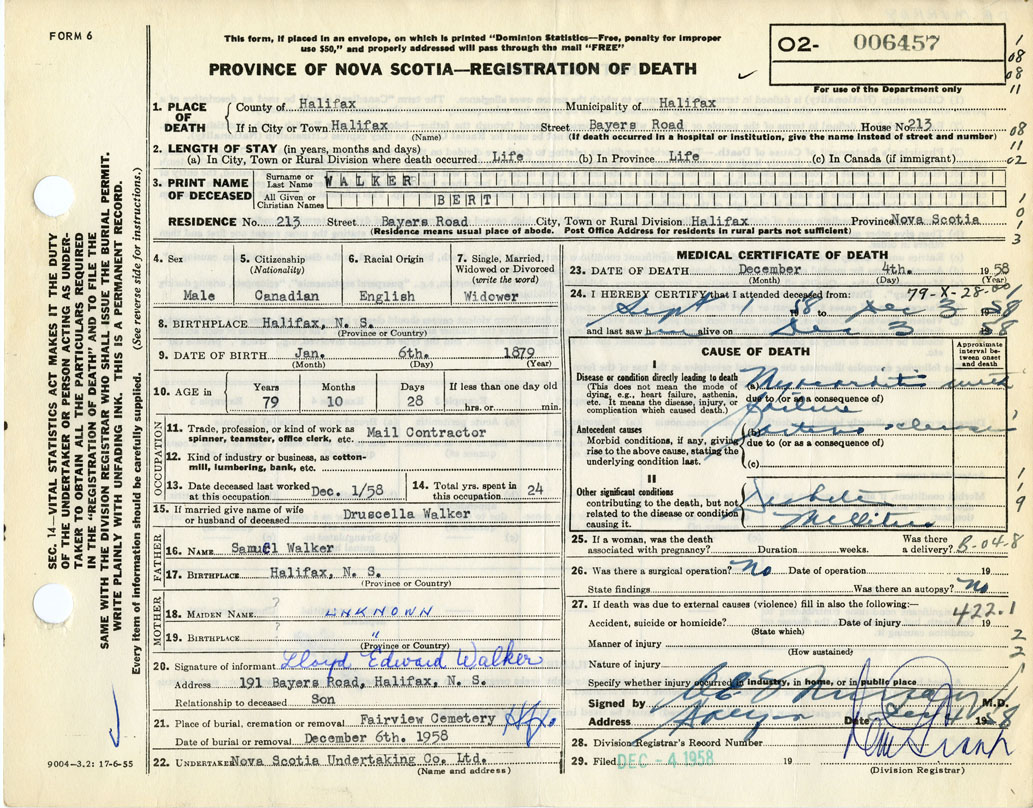 FORM 6
This form, if placed in an envelope, on which is printed "Dominion Statistics—Free, penalty for improper
use $50," and properly addressed will pass through the mail "FREE"
PROVINCE OF NOVA SCOTIA—REGISTRATION OF DEATH
02- 006457
For use of the Department only
1
08
08
11
08
11
02
1. PLACE OF DEATH
County of Halifax Municipality of Halifax
If in City or Town Halifax Street Bayers Road House No. 213
(Name) (If death occurred in a hospital or institution, give the name instead of street and number)
2. LENGTH OF STAY (in years, months and days)
(a) In City, Town or Rural Division where death occurred Life (b) In Province Life (c) In Canada (if immigrant)
3. PRINT NAME OF DECEASED
Surname or Last Name WALKER
All Given or Christian Names BERT
RESIDENCE No. 213 Street Bayers Road City, Town or Rural Division Halifax Province Nova Scotia
(Residence means usual place of abode. Post Office Address for residents in rural parts not sufficient)
1
0
1
3
4. Sex
Male
5. Citizenship
(Nationality)
Canadian
6. Racial Origin
English
7. Single, Married,
Widowed or Divorced
(write the word)
Widower
8. BIRTHPLACE Halifax, N. S.
(Province or Country)
9. DATE OF BIRTH Jan. 6th. 1879
(Month) (Day) (Year)
10. AGE in
Years Months Days If less than one day old
79 10 28 hrs. or min.
OCCUPATION
11. Trade, profession, or kind of work as Mail Contractor
spinner, teamster, office clerk, etc.
12. Kind of industry or business, as cotton-
mill, lumbering, bank, etc.
13. Date deceased last worked
at this occupation Dec. 1/58
14. Total yrs. spent in
this occupation 24
15. If married give name of wife
or husband of deceased Druscella Walker
FATHER
16. NAME Samuel Walker
17. BIRTHPLACE Halifax, N. S.
(Province or Country)
MOTHER
18. MAIDEN NAME ? UNKNOWN
19. BIRTHPLACE ? "
(Province or Country)
20. Signature of informant Lloyd Edward Walker
Address 191 Bayers Road, Halifax, N. S.
Relationship to deceased Son
21. Place of burial, cremation or removal Fairview Cemetery Hfx
Date of burial or removal December 6th. 1958
22. UNDERTAKER Nova Scotia Undertaking Co. Ltd.
(Name and address)
MEDICAL CERTIFICATE OF DEATH
23. DATE OF DEATH December 4th. 1958
(Month) (Day) (Year)
79-X-28-
24. I HEREBY CERTIFY that I attended deceased from:
Sept 1 1958 to Dec 3 1958
and last saw him alive on Dec 3 1958
CAUSE OF DEATH
Approximate interval between onset and death
I
Disease or condition directly leading to death
(This does not mean the mode of
dying, e.g., heart failure, asthenia,
etc. It means the disease, injury, or
complication which caused death.)
(a) Myocarditis with
due to (or as a consequence of)
failure
Antecedent causes
Morbid conditions, if any, giving
rise to the above cause, stating the
underlying condition last.
(b) Arterio sclerosis
due to (or as a consequence of)
(c)
II
Other significant conditions
contributing to the death, but not
related to the disease or condition
causing it.
Diabetes
Mellitus
1
1
9
25. If a woman, was the death
associated with pregnancy? Duration weeks. Was there a delivery?
B-04-8
26. Was there a surgical operation? No Date of operation 19
State findings Was there an autopsy? No
27. If death was due to external causes (violence) fill in also the following:—
422.1
Accident, suicide or homicide? Date of injury 19
(State which)
Manner of injury
(How sustained)
2
2
Nature of injury
Specify whether injury occurred in industry, in home, or in public place
Signed by M.D.
Address Date Dec 4 1958
28. Division Registrar's Record Number
29. Filed DEC - 4 1958 19
(Division Registrar)
SEC. 14—VITAL STATISTICS ACT MAKES IT THE DUTY
OF THE UNDERTAKER OR PERSON ACTING AS UNDER-
TAKER TO OBTAIN ALL THE PARTICULARS REQUIRED
IN THE "REGISTRATION OF DEATH" AND TO FILE THE
SAME WITH THE DIVISION REGISTRAR WHO SHALL ISSUE THE BURIAL PERMIT.
WRITE PLAINLY WITH UNFADING INK. THIS IS A PERMANENT RECORD.
Every item of information should be carefully supplied. (See reverse side for instructions.)
9004-3.2: 17-6-55